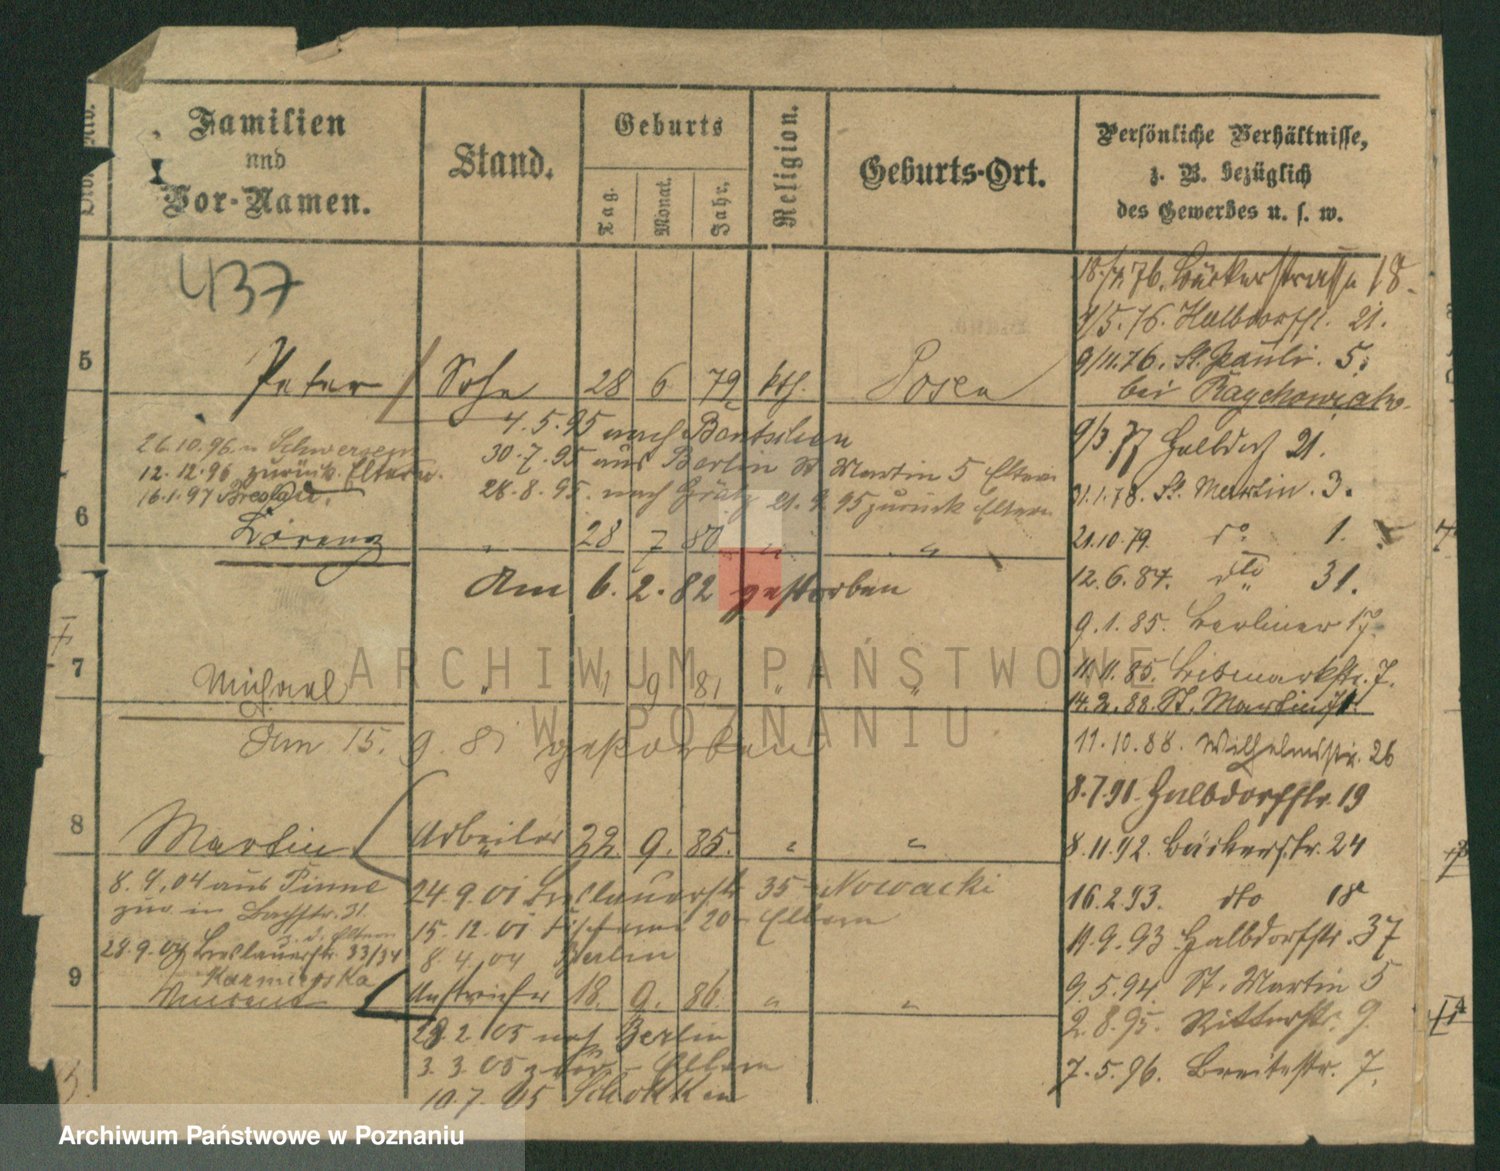 Familien
und
Vor-Namen.
Stand.
Geburts
Tag.
Monat.
Jahr.
Religion.
Geburts-Ort.
Persönliche Verhältnisse,
z. B. bezüglich
des Gewerbes u. s. w.
437
5 Peter Sohn 28 6 79 kth. Posen
4.5.95 nach Bentschen
26.10.96 n Schwersenz
30.7.95 aus Berlin St Martin 5 Eltern
12.12.96 zurück Eltern
28.8.95 nach Grätz 21.9.95 zurück Eltern
16.1.97 Breslau.
6 Lorenz " 28 7 80 " "
Am 6.2.82 gestorben
7 Michael " 1 9 81 " "
Am 15. 9. 81 gestorben
8 Martin Arbeiter 22. 9. 85. " "
8.4.04 aus Pinne
zur. in Bachstr. 31.
z. d. Eltern
28.9.04 Breslauerstr. 33/34
Kazmierska
24.9.01 Breslauerstr 35 - Nowacki
15.12.01 20 - Eltern
8.4.04 Berlin
9 Vincent Anstreicher 18. 9. 86. " "
28.2.05 nach Berlin
3.3.05 zur. - Eltern
10.7.05 Schokken
76. Bäckerstrasse 18.
9/5.76. Halbdorfstr. 21.
9/11.76. St. Pauli. 5.
bei
9/3 77 Halbdorf 21.
31.1.78. St. Martin. 3.
21.10.79. do 1.
12.6.84. dto 31.
9.1.85. Berliner 17.
11.11.85. Bismarkstr. 7.
14.2.88. St. Martin 71.
11.10.88. Wilhelmstr. 26
8.7.91. Halbdorfstr. 19
8.11.92. Bäckerstr. 24
16.2.93. dto 18
11.9.93 Halbdorfstr. 37
9.5.94 St. Martin 5
2.8.95. Ritterstr. 9.
7.5.96. Breitestr. 7.
ARCHIWUM PAŃSTWOWE
W POZNANIU
Archiwum Państwowe w Poznaniu